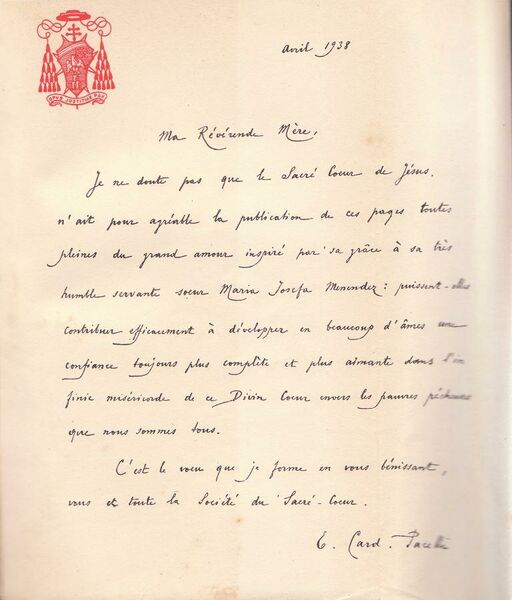 OPUS JUSTITIAE PAX
Avril 1938
Ma Révérende Mère,
Je ne doute pas que le Sacré Coeur de Jésus,
n'ait pour agréable la publication de ces pages toutes
pleines du grand amour inspiré par sa grâce à sa très
humble servante soeur Maria Josefa Menendez : puissent-elles
contribuer efficacement à développer en beaucoup d'âmes une
confiance toujours plus complète et plus aimante dans l'in
finie miséricorde de ce Divin Coeur envers les pauvres pécheurs
que nous sommes tous.
C'est le voeu que je forme en vous bénissant,
vous et toute la Société du Sacré-Coeur.
E. Card. Pacelli